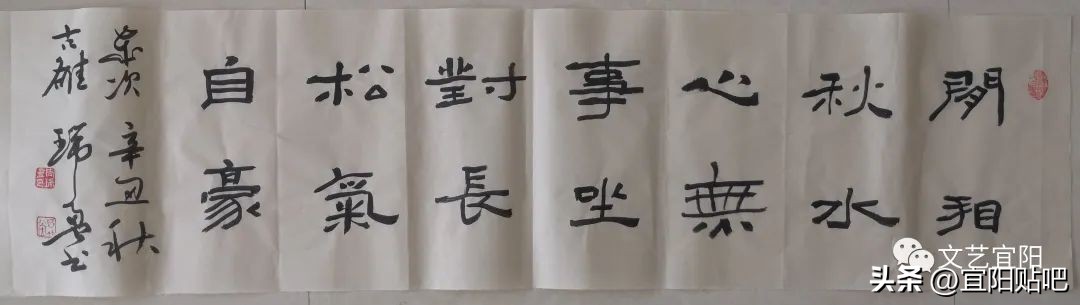 閒相
秋水
心無
事坐
對長
松氣
自豪
歲次辛丑秋
古雒 瑞
文艺宜阳
头条@宜阳贴吧